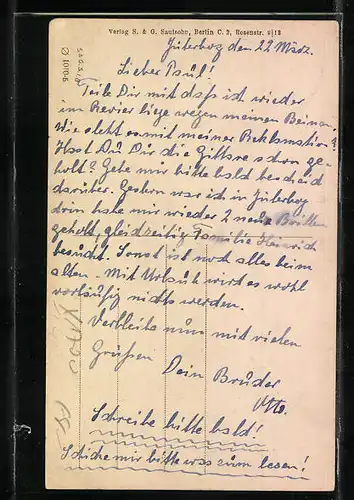 Verlag S. & G. Saulsohn, Berlin C. 2, Rosenstr. 9/13
Jüterbog den 22 März.
Lieber Paul!
Teile Dir mit daß ich wieder
im Revier liege wegen meinen Beinen.
Wie steht es mit meiner Reklamation?
Hast Du Dir die schon ge-
holt? Gebe mir bitte bald bescheid
darüber. Gestern war ich in Jüterbog
drin habe mir wieder 2 neue
geholt, gleichzeitig Familie Heinrich
besucht. Sonst ist noch alles beim
alten. - Mit Urlaub wird es wohl
vorläufig nichts werden.
Verbleibe nun mit vielen
Grüßen
Dein Bruder
Otto.
Schreibe bitte bald!
Schicke mir bitte was zum lesen!